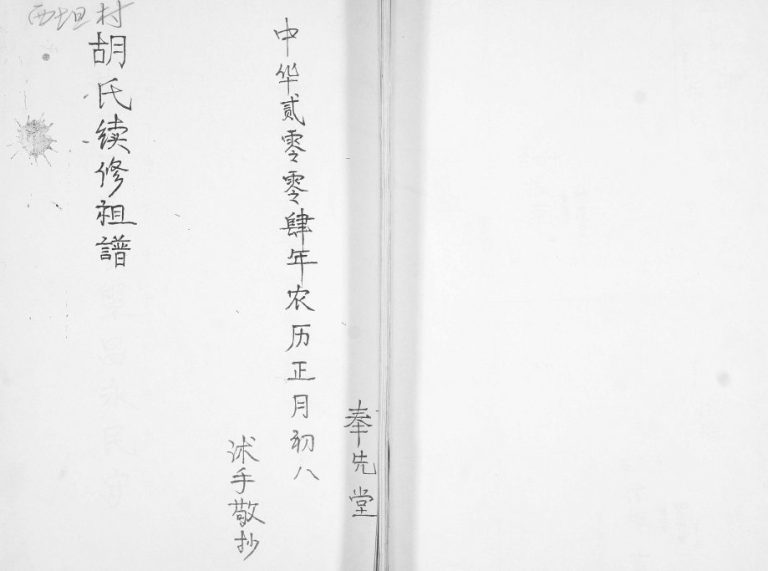 奉先堂
中华贰零零肆年农历正月初八
沭手敬抄
胡氏续修祖譜
西坦村